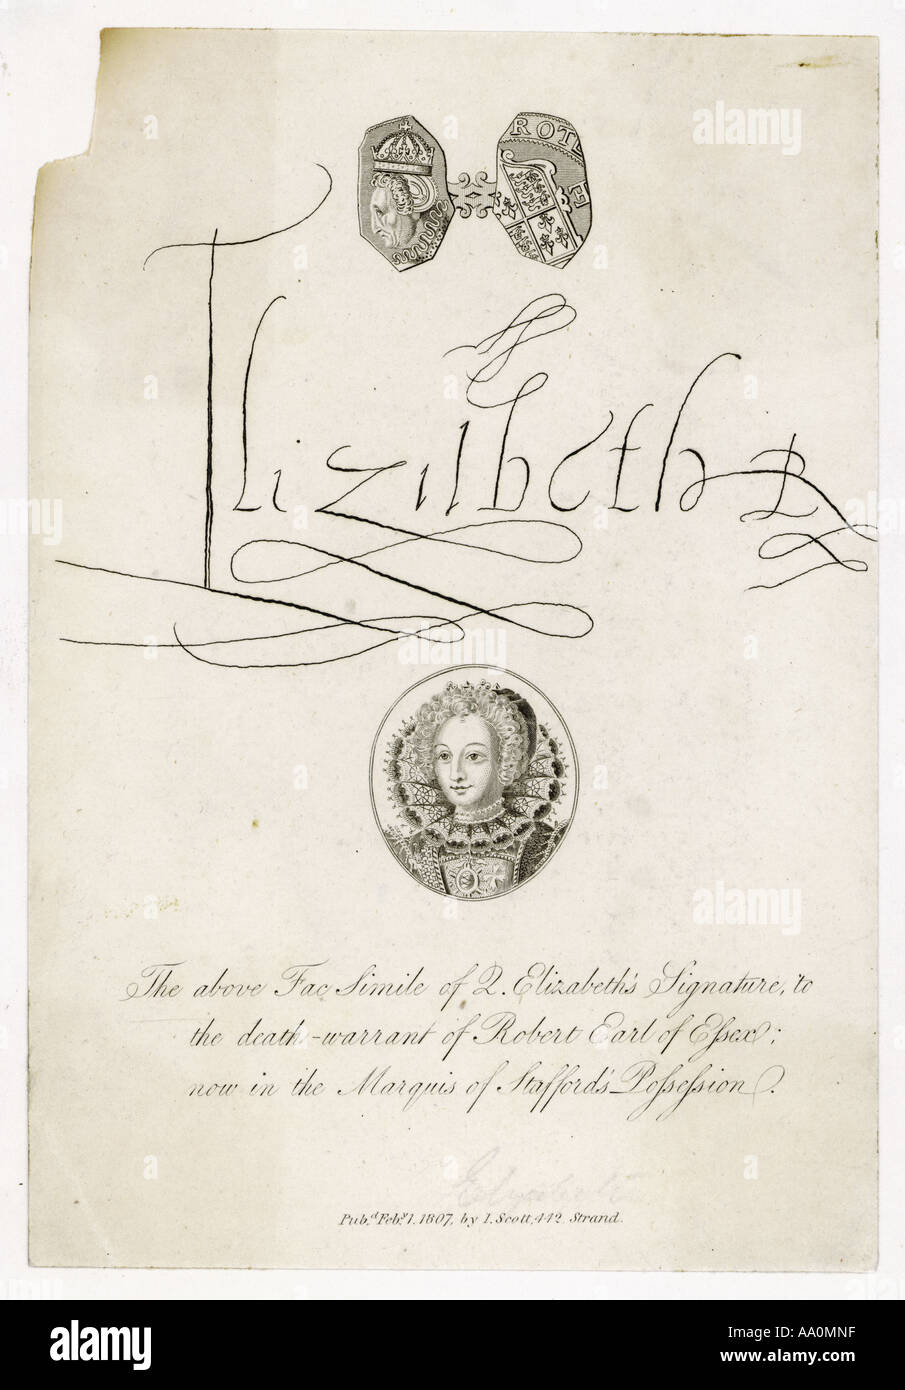 ROT
E
Elizabeth R
The above Fac Simile of Q. Elizabeth's Signature, to
the death-warrant of Robert Earl of Essex;
now in the Marquis of Stafford's Possession.
Elizabeth
Pub.d Feby. 1. 1807, by I. Scott, 442. Strand.
alamy
Image ID: AA0MNF
www.alamy.com